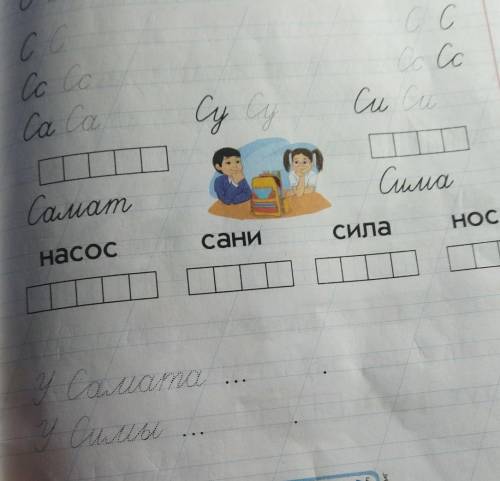 С С С С
Сс Сс Сс Сс
Са Са Су Су Си Си
Самат Сима
насос сани сила нос
У Самата ... .
У Симы ... .